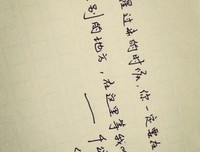 醒过来的时候,你一定要在
别的地方,在这里等我